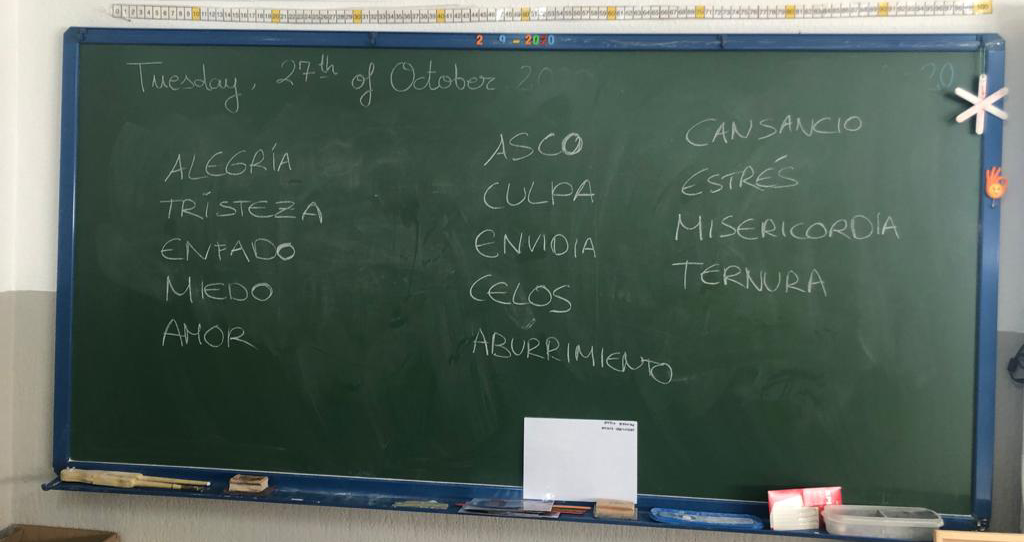 2 9 - 2020
Tuesday, 27th of October 20
20
ALEGRÍA
TRISTEZA
ENFADO
MIEDO
AMOR
ASCO
CULPA
ENVIDIA
CELOS
ABURRIMIENTO
CANSANCIO
ESTRÉS
MISERICORDIA
TERNURA